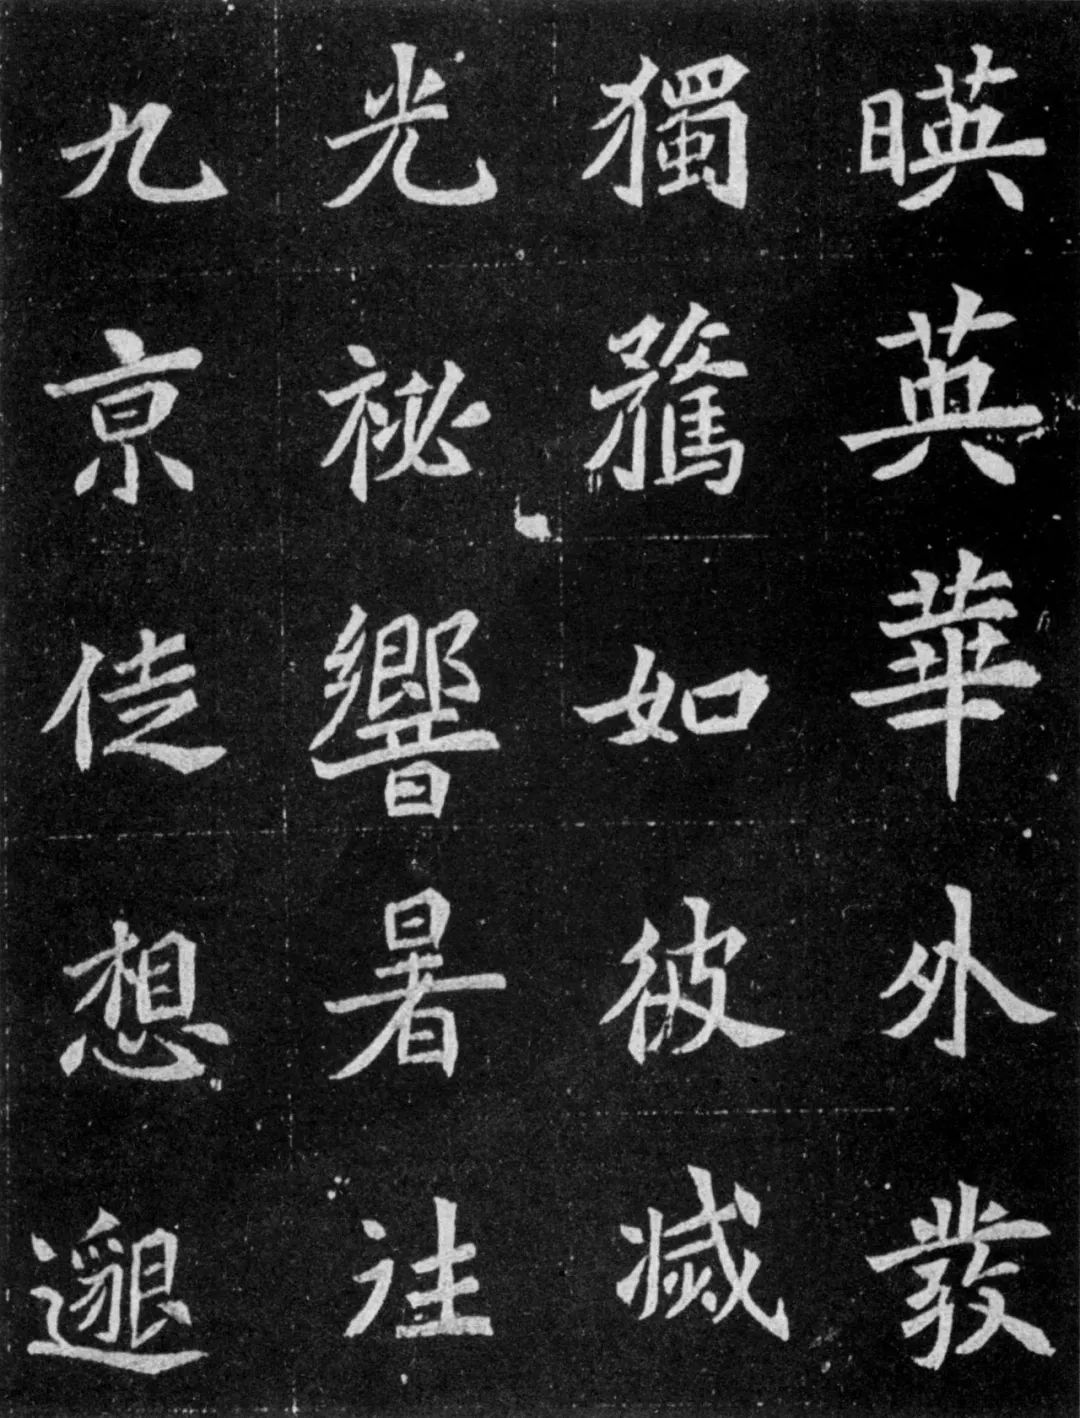 暎英華外發
獨如彼滅
光祕響暑往
九京徒想邈